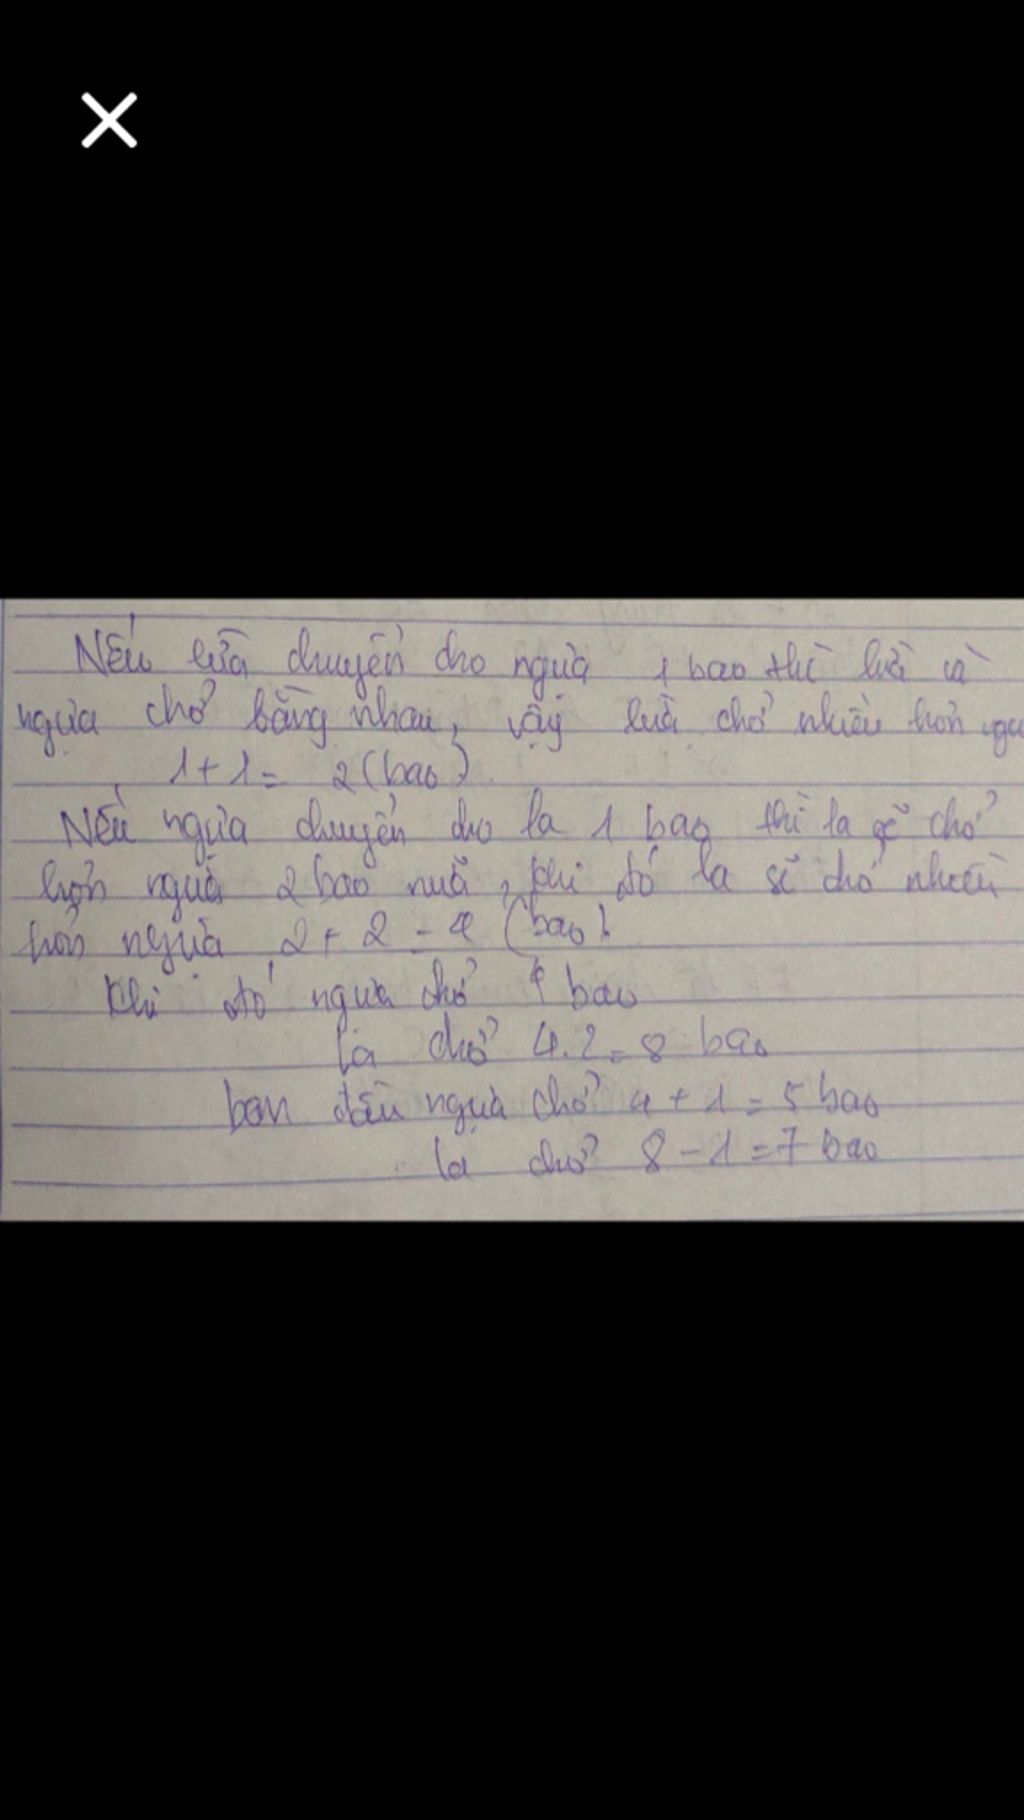 Nếu lừa chuyển cho ngựa 1 bao thì lừa và
ngựa chở bằng nhau, vậy lừa chở nhiều hơn
1 + 1 = 2 (bao)
Nếu ngựa chuyển cho la 1 bao thì la sẽ chở
hơn ngựa 2 bao nữa, khi đó la sẽ chở nhiều
hơn ngựa 2 + 2 = 4 (bao).
Khi đó ngựa chở 4 bao
la chở 4.2 = 8 bao
ban đầu ngựa chở 4 + 1 = 5 bao
la chở 8 - 1 = 7 bao